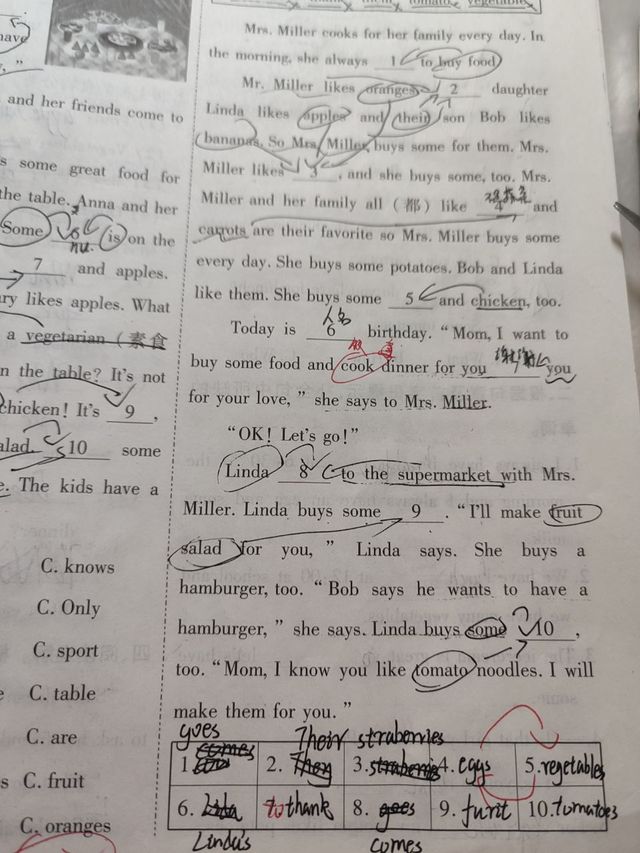 tomato vegetable
have
and her friends come to
s some great food for
the table. Anna and her
Some 6 is on the
7 and apples.
ry likes apples. What
a vegetarian (素食
n the table? It's not
chicken! It's 9 ,
alad. 10 some
e. The kids have a
C. knows
C. Only
C. sport
C. table
C. are
s C. fruit
C. oranges
Mrs. Miller cooks for her family every day. In
the morning, she always 1 to buy food
Mr. Miller likes oranges. 2 daughter
Linda likes apples and their son Bob likes
bananas. So Mrs. Miller buys some for them. Mrs.
Miller likes 3 , and she buys some, too. Mrs.
Miller and her family all (都) like 4 and
carrots are their favorite so Mrs. Miller buys some
every day. She buys some potatoes. Bob and Linda
like them. She buys some 5 and chicken, too.
人名
Today is 6 birthday. “Mom, I want to
buy some food and cook dinner for you you
for your love, ” she says to Mrs. Miller.
“OK! Let's go!”
Linda 8 to the supermarket with Mrs.
Miller. Linda buys some 9 . “I'll make fruit
salad for you, ” Linda says. She buys a
hamburger, too. “Bob says he wants to have a
hamburger, ” she says. Linda buys some 10 ,
too. “Mom, I know you like tomato noodles. I will
make them for you. ”
goes Their straberries
1. comes 2. They 3. 4. eggs 5. regetables
6. thank 8. goes 9. furit 10. tomatoes
Linda's comes